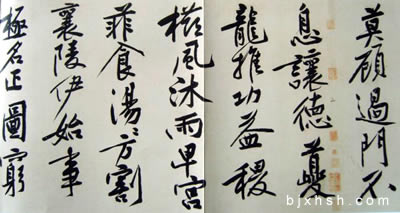 莫顧過門不
息讓德夔
龍推功益稷
櫛風沐雨卑宮
菲食湯〻方割
襄陵伊始事
極名正圖窮
bjxhsh.com